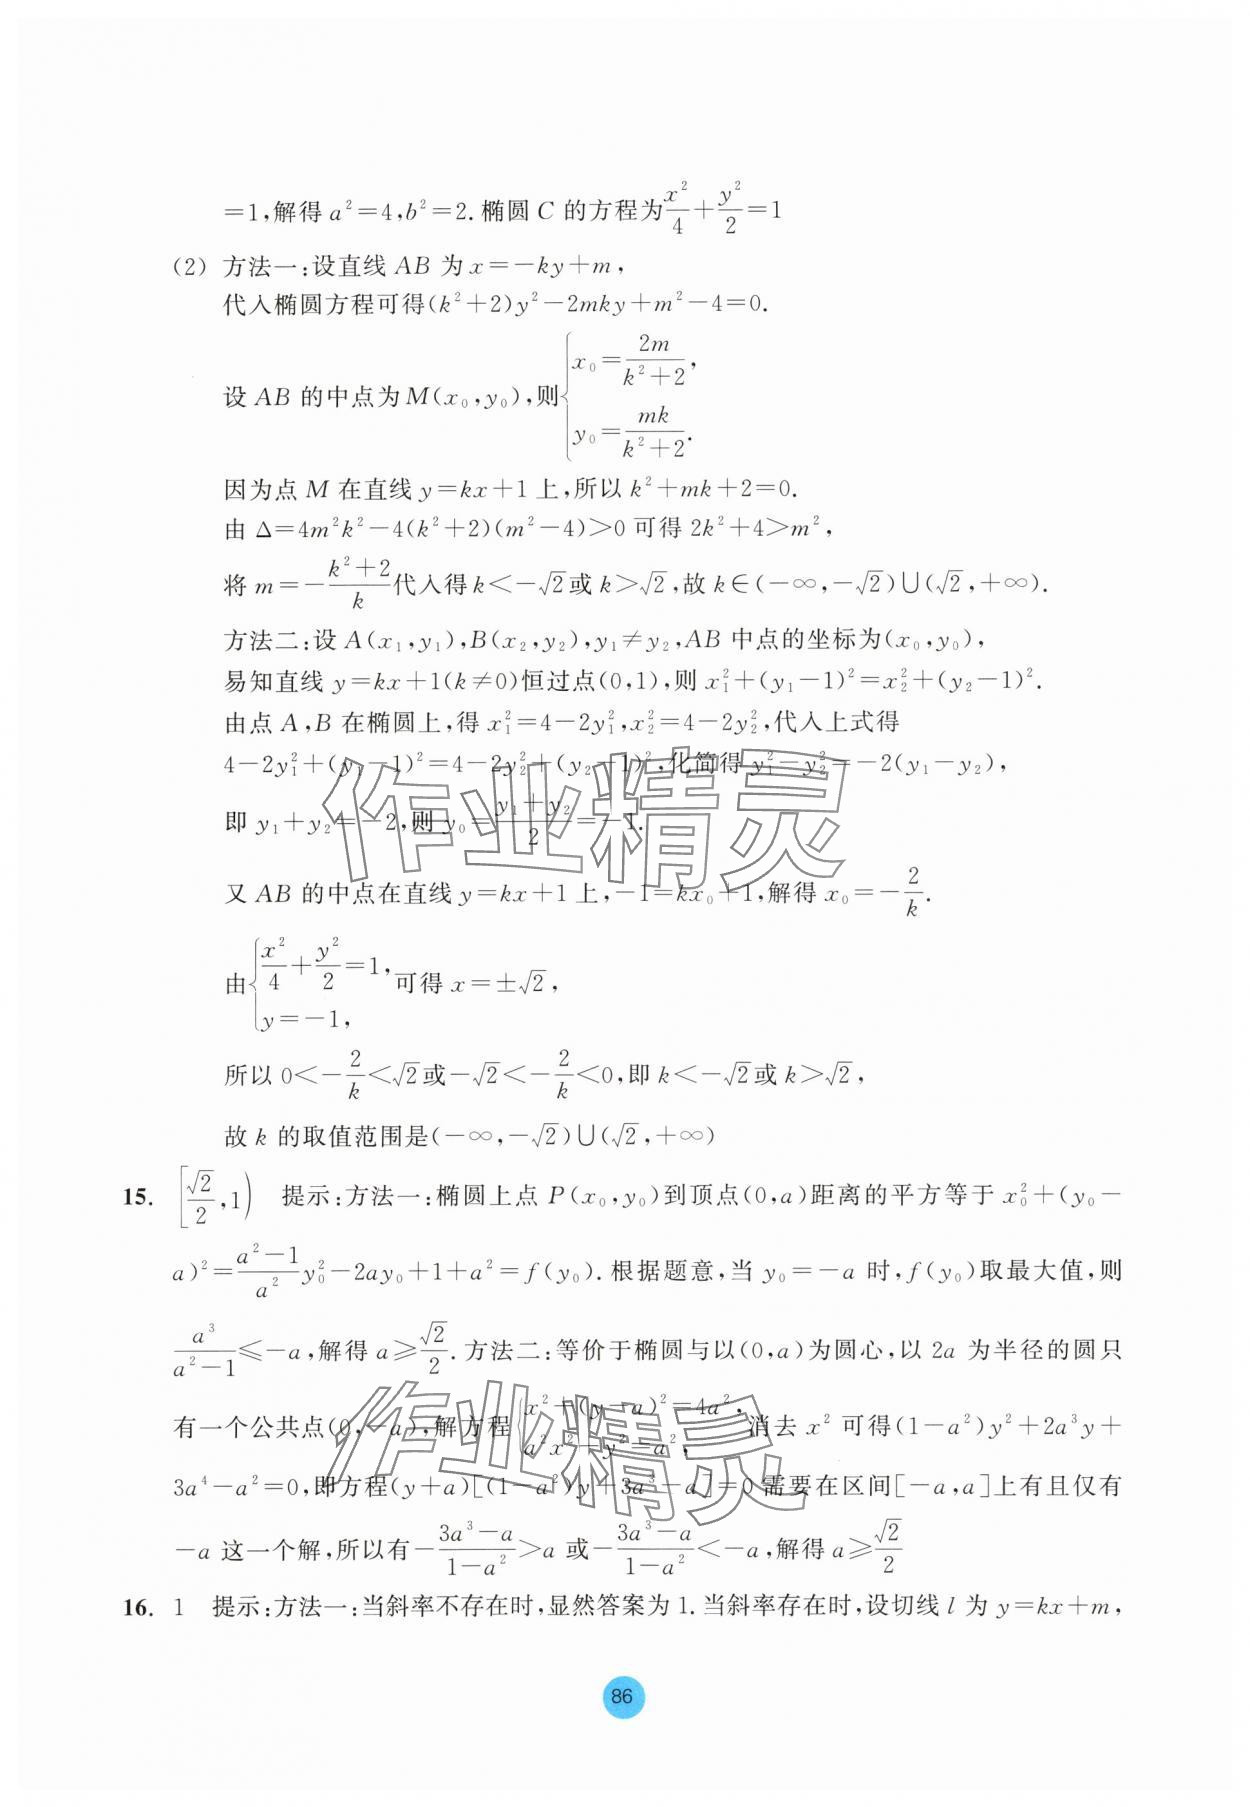 =1,解得 a²=4,b²=2. 椭圆 C 的方程为x²/4+y²/2=1
(2) 方法一:设直线 AB 为 x=-ky+m,
代入椭圆方程可得(k²+2)y²-2mky+m²-4=0.
设 AB 的中点为 M(x₀,y₀),则{x₀=2m/(k²+2), y₀=mk/(k²+2).
因为点 M 在直线 y=kx+1 上,所以 k²+mk+2=0.
由 Δ=4m²k²-4(k²+2)(m²-4)>0 可得 2k²+4>m²,
将 m=-(k²+2)/k代入得 k<-√2或 k>√2,故 k∈(-∞,-√2)∪(√2,+∞).
方法二:设 A(x₁,y₁),B(x₂,y₂),y₁≠y₂,AB 中点的坐标为(x₀,y₀),
易知直线 y=kx+1(k≠0)恒过点(0,1),则 x₁²+(y₁-1)²=x₂²+(y₂-1)².
由点 A,B 在椭圆上,得 x₁²=4-2y₁²,x₂²=4-2y₂²,代入上式得
4-2y₁²+(y₁-1)²=4-2y₂²+(y₂-1)²,化简得 y₁²-y₂²=-2(y₁-y₂),
即 y₁+y₂=-2,则 y₀=(y₁+y₂)/2=-1.
又 AB 的中点在直线 y=kx+1 上,-1=kx₀+1,解得 x₀=-2/k.
由{x²/4+y²/2=1, y=-1,可得 x=±√2,
所以 0<-2/k<√2或-√2<-2/k<0,即 k<-√2或 k>√2,
故 k 的取值范围是(-∞,-√2)∪(√2,+∞)
15. [√2/2,1) 提示:方法一:椭圆上点 P(x₀,y₀)到顶点(0,a)距离的平方等于 x₀²+(y₀-
a)²=(a²-1)/a² y₀²-2ay₀+1+a²=f(y₀). 根据题意,当 y₀=-a 时,f(y₀)取最大值,则
a³/(a²-1)≤-a,解得 a≥√2/2. 方法二:等价于椭圆与以(0,a)为圆心,以 2a 为半径的圆只
有一个公共点(0,-a),解方程{x²+(y-a)²=4a², a²x²+y²=a²,消去 x² 可得(1-a²)y²+2a³y+
3a⁴-a²=0,即方程(y+a)[(1-a²)y+3a³-a]=0 需要在区间[-a,a]上有且仅有
-a 这一个解,所以有-(3a³-a)/(1-a²)>a 或-(3a³-a)/(1-a²)<-a,解得 a≥√2/2
16. 1 提示:方法一:当斜率不存在时,显然答案为 1. 当斜率存在时,设切线 l 为 y=kx+m,
86
作业精灵
作业精灵